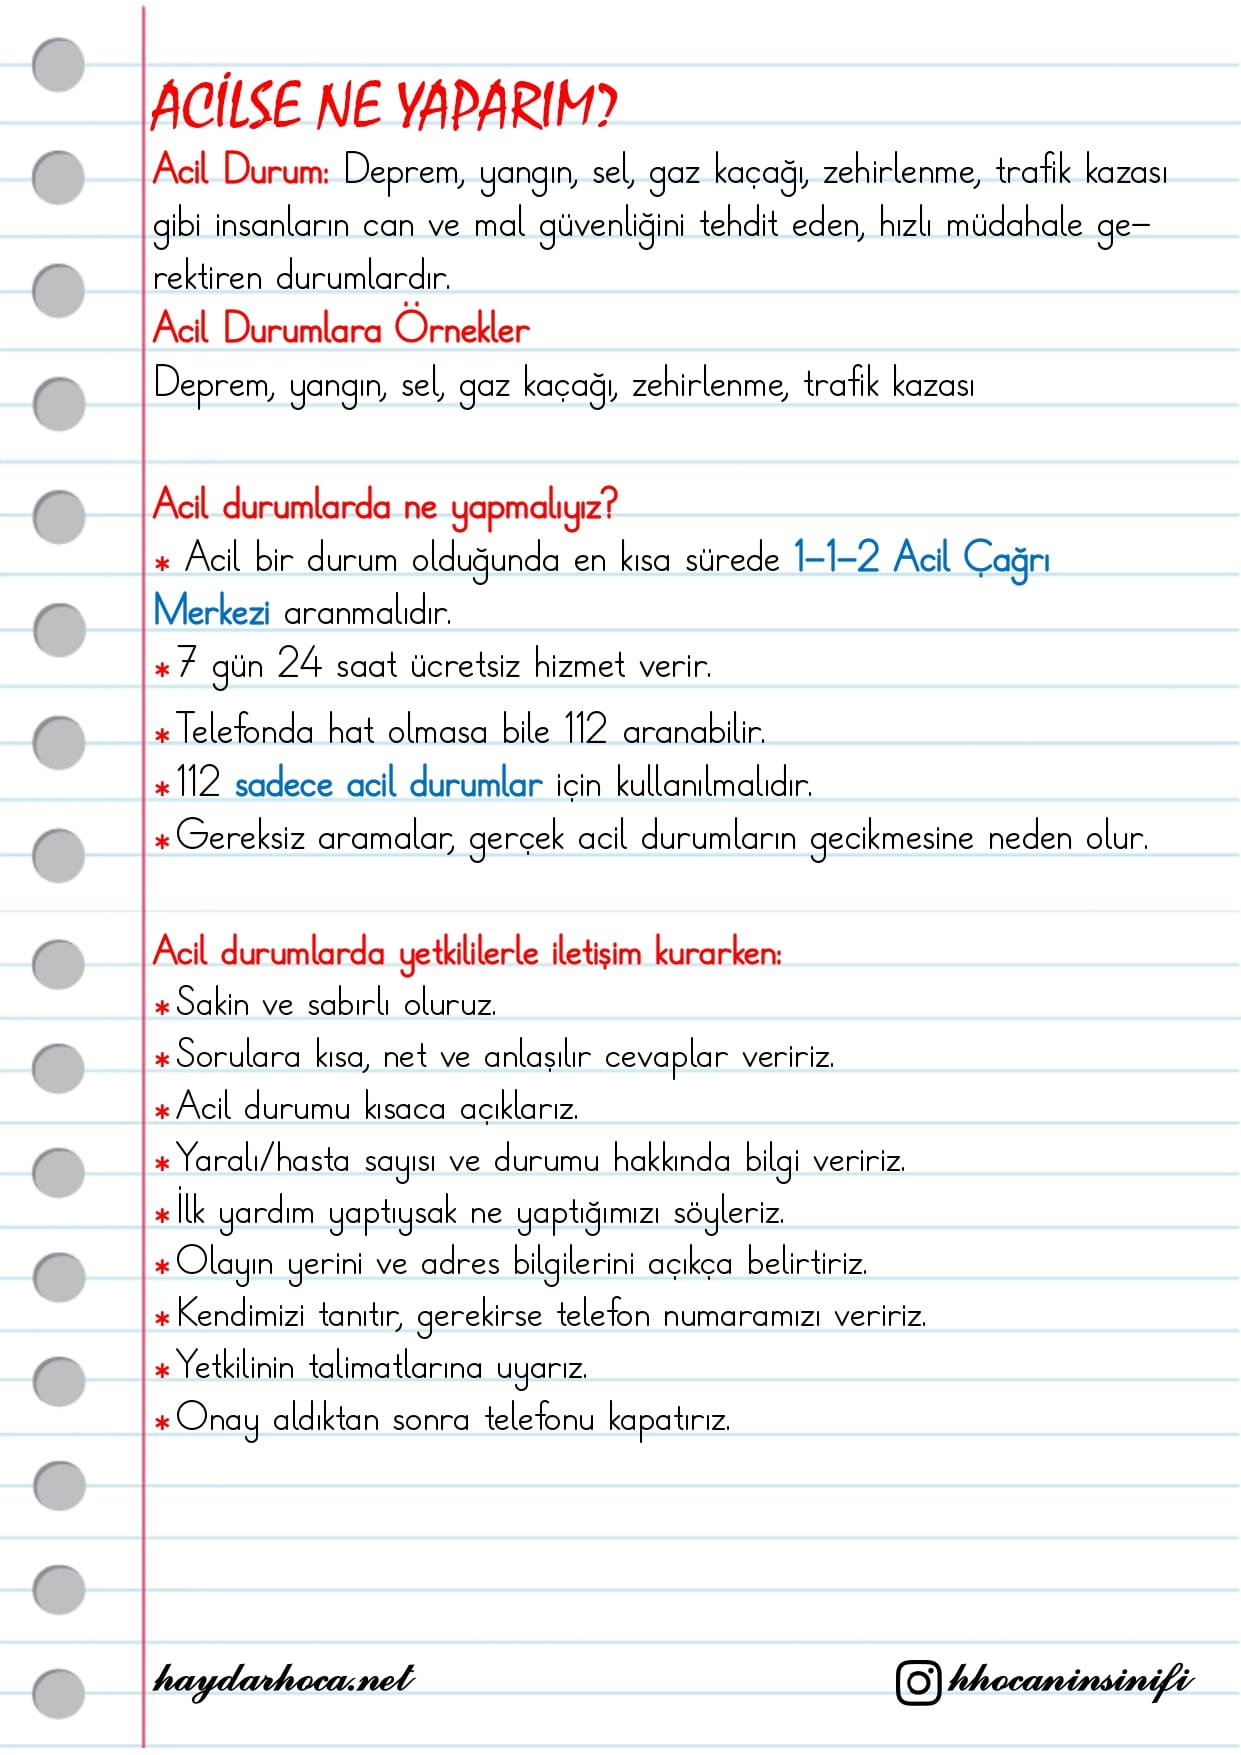 ACİLSE NE YAPARIM?
Acil Durum: Deprem, yangın, sel, gaz kaçağı, zehirlenme, trafik kazası
gibi insanların can ve mal güvenliğini tehdit eden, hızlı müdahale ge-
rektiren durumlardır.
Acil Durumlara Örnekler
Deprem, yangın, sel, gaz kaçağı, zehirlenme, trafik kazası
Acil durumlarda ne yapmalıyız?
* Acil bir durum olduğunda en kısa sürede 1-1-2 Acil Çağrı
Merkezi aranmalıdır.
* 7 gün 24 saat ücretsiz hizmet verir.
* Telefonda hat olmasa bile 112 aranabilir.
* 112 sadece acil durumlar için kullanılmalıdır.
* Gereksiz aramalar, gerçek acil durumların gecikmesine neden olur.
Acil durumlarda yetkililerle iletişim kurarken:
* Sakin ve sabırlı oluruz.
* Sorulara kısa, net ve anlaşılır cevaplar veririz.
* Acil durumu kısaca açıklarız.
* Yaralı/hasta sayısı ve durumu hakkında bilgi veririz.
* İlk yardım yaptıysak ne yaptığımızı söyleriz.
* Olayın yerini ve adres bilgilerini açıkça belirtiriz.
* Kendimizi tanıtır, gerekirse telefon numaramızı veririz.
* Yetkilinin talimatlarına uyarız.
* Onay aldıktan sonra telefonu kapatırız.
haydarhoca.net
hhocaninsinifi